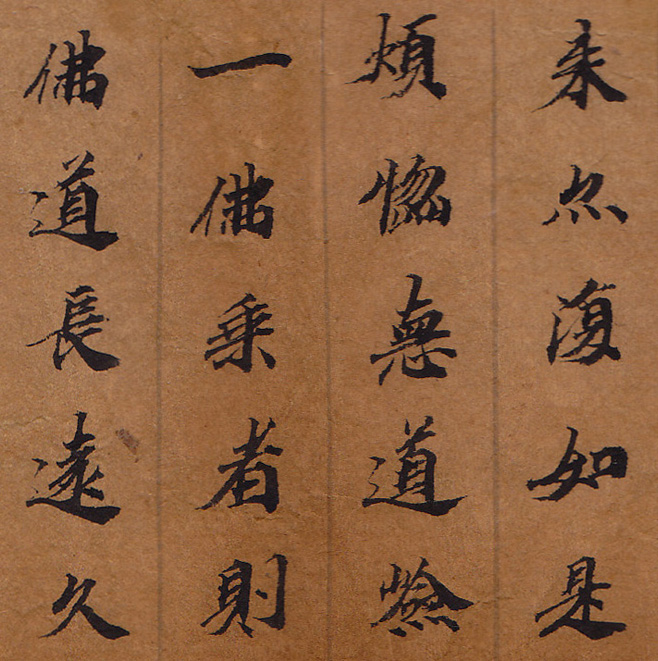 来亦復如是
煩惱惡道嶮
一佛乗者則
佛道長遠久